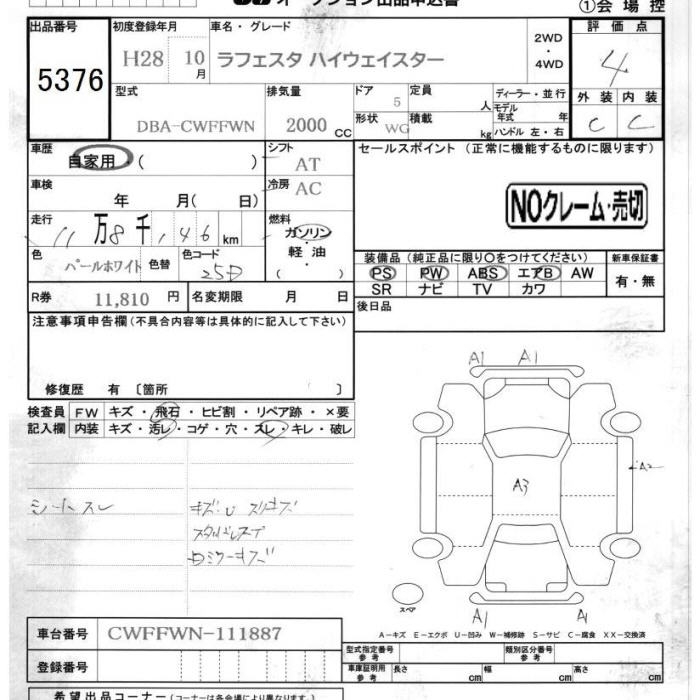 ①会場控
出品番号 初度登録年月 車名・グレード 評価点
5376 H28 10月 ラフェスタ ハイウェイスター 2WD・4WD 4
型式 排気量 ドア 定員 ディーラー・並行 外装 内装
DBA-CWFFWN 2000 CC 5 人 モデル年式 年 C C
形状 WG 積載 kg ハンドル 左・右
車歴 シフト セールスポイント (正常に機能するものに限ります)
自家用・( ) AT
車検 冷房
年 月( 日) AC NOクレーム・売切
走行 燃料
11万8千,146km ガソリン・軽油( )
色 パールホワイト 色替 色コード 25D
装備品(純正品に限り〇をつけてください) 新車保証書
PS PW ABS エアB AW 有・無
SR ナビ TV カワ
R券 11,810 円 名変期限 月 日 後日品
注意事項申告欄(不具合内容等は具体的に記入して下さい)
修復歴 有 〔箇所 〕
検査員 FW キズ・飛石・ヒビ割・リペア跡・×要
記入欄 内装 キズ・汚レ・コゲ・穴・スレ・キレ・破レ
シートスレ
A1 A1
A2
A3
A1 A1
スペア
A-キズ E-エクボ U-凹み W-補修跡 S-サビ C-腐食 XX-交換済
車台番号 CWFFWN-111887
型式指定番号 参考 類別区分番号 参考
登録番号 車庫証明用 参考 長さ cm 幅 cm 高さ cm
希望出品コーナー(コーナーは各会場により異なります)